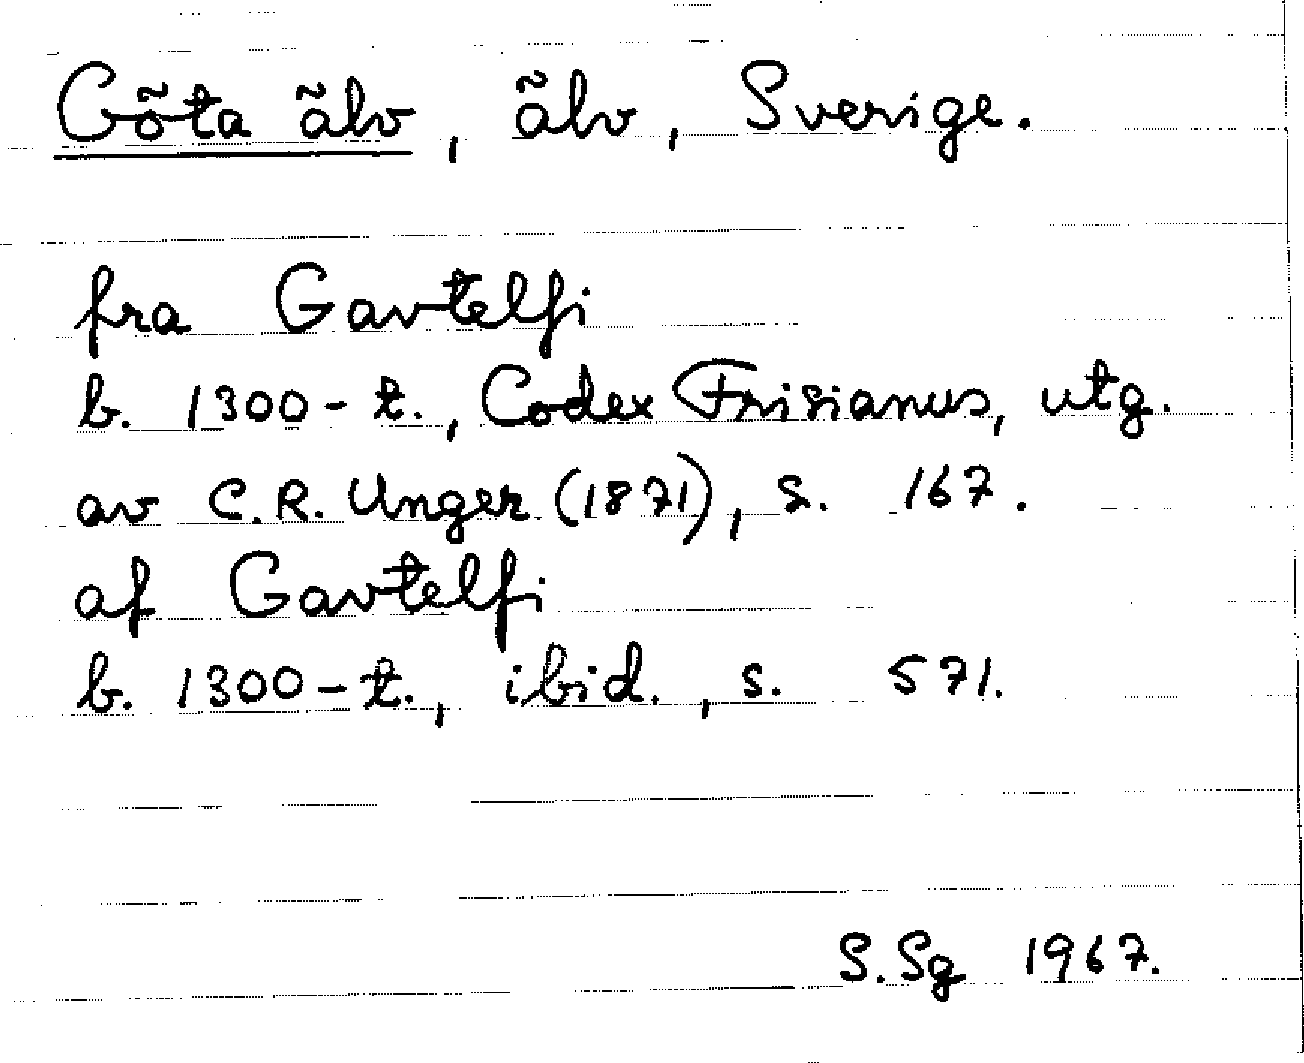 Göta älv, älv, Sverige.
fra Gavtelfi
b. 1300-t., Codex Frisianus, utg.
av C.R. Unger (1871), s. 167.
af Gavtelfi
b. 1300-t., ibid., s. 571.
S.Sg 1967.